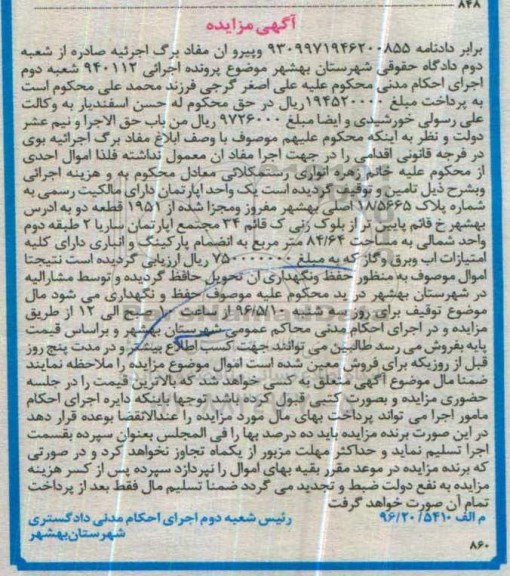 ۸۴۸
آگهی مزایده
برابر دادنامه ۹۳۰۹۹۷۱۹۴۶۲۰۰۸۵۵ وپیرو ان مفاد برگ اجرئیه صادره از شعبه
دوم دادگاه حقوقی شهرستان بهشهر موضوع پرونده اجرائی ۹۴۰۱۱۲ شعبه دوم
اجرای احکام مدنی محکوم علیه علی اصغر گرجی فرزند محمد علی محکوم است
به پرداخت مبلغ ۱۹۴۵۲۰۰۰۰ ریال در حق محکوم له حسن اسفندیار به وکالت
علی رسولی خورشیدی و ایضا مبلغ ۹۷۲۶۰۰۰ ریال من باب حق الاجرا و نیم عشر
دولت و نظر به اینکه محکوم علیهم موصوف با وصف ابلاغ مفاد برگ اجرائیه بوی
در فرجه قانونی اقدامی را در جهت اجرا مفاد ان معمول نداشته فلذا اموال احدی
از محکوم علیه خانم زهره انواری رستمکلائی معادل محکوم به و هزینه اجرائی
وبشرح ذیل تامین و توقیف گردیده است یک واحد اپارتمان دارای مالکیت رسمی به
شماره پلاک ۱۸۵۶۶۵ اصلی بهشهر مفروز ومجزا شده از ۱۹۵۱ قطعه دو به ادرس
بهشهر خ قائم پایین تر از بلوک زنی ک قائم ۳۴ مجتمع اپارتمان ساریا ۲ طبقه دوم
واحد شمالی به مساحت ۸۴/۶۴ متر مربع به انضمام پارکینگ و انباری دارای کلیه
امتیازات اب وبرق و گاز که به مبلغ ۷۵۰۰۰۰۰۰۰ ریال ارزیابی گردیده است نتیجتا
اموال موصوف به منظور حفظ ونگهداری ان تحویل حافظ گردیده و توسط مشارالیه
در شهرستان بهشهر در ید محکوم علیه موصوف حفظ و نگهداری می شود مال
موضوع توقیف برای روز سه شنبه ۹۶/۵/۱۰ از ساعت صبح الی ۱۲ از طریق
مزایده و در اجرای احکام مدنی محاکم عمومی شهرستان بهشهر و براساس قیمت
پایه بفروش می رسد طالبین می توانند جهت کسب اطلاع بیشتر و در مدت پنج روز
قبل از روزیکه برای فروش معین شده است اموال موضوع مزایده را ملاحظه نمایند
ضمنا مال موضوع آگهی متعلق به کسی خواهد شد که بالاترین قیمت را در جلسه
حضوری مزایده و بصورت کتبی قبول کرده باشد توجها باینکه دایره اجرای احکام
مامور اجرا می تواند پرداخت بهای مال مورد مزایده را عندالاقتضا بوعده قرار دهد
در این صورت برنده مزایده باید ده درصد بها را فی المجلس بعنوان سپرده بقسمت
اجرا تسلیم نماید و حداکثر مهلت مزبور از یکماه تجاوز نخواهد کرد و در صورتی
که برنده مزایده در موعد مقرر بقیه بهای اموال را نپردازد سپرده پس از کسر هزینه
مزایده به نفع دولت ضبط و تجدید می گردد ضمنا تسلیم مال فقط بعد از پرداخت
تمام آن صورت خواهد گرفت
م الف ۹۶/۲۰/۵۴۱۰ رئیس شعبه دوم اجرای احکام مدنی دادگستری
شهرستان بهشهر
۸۶۰